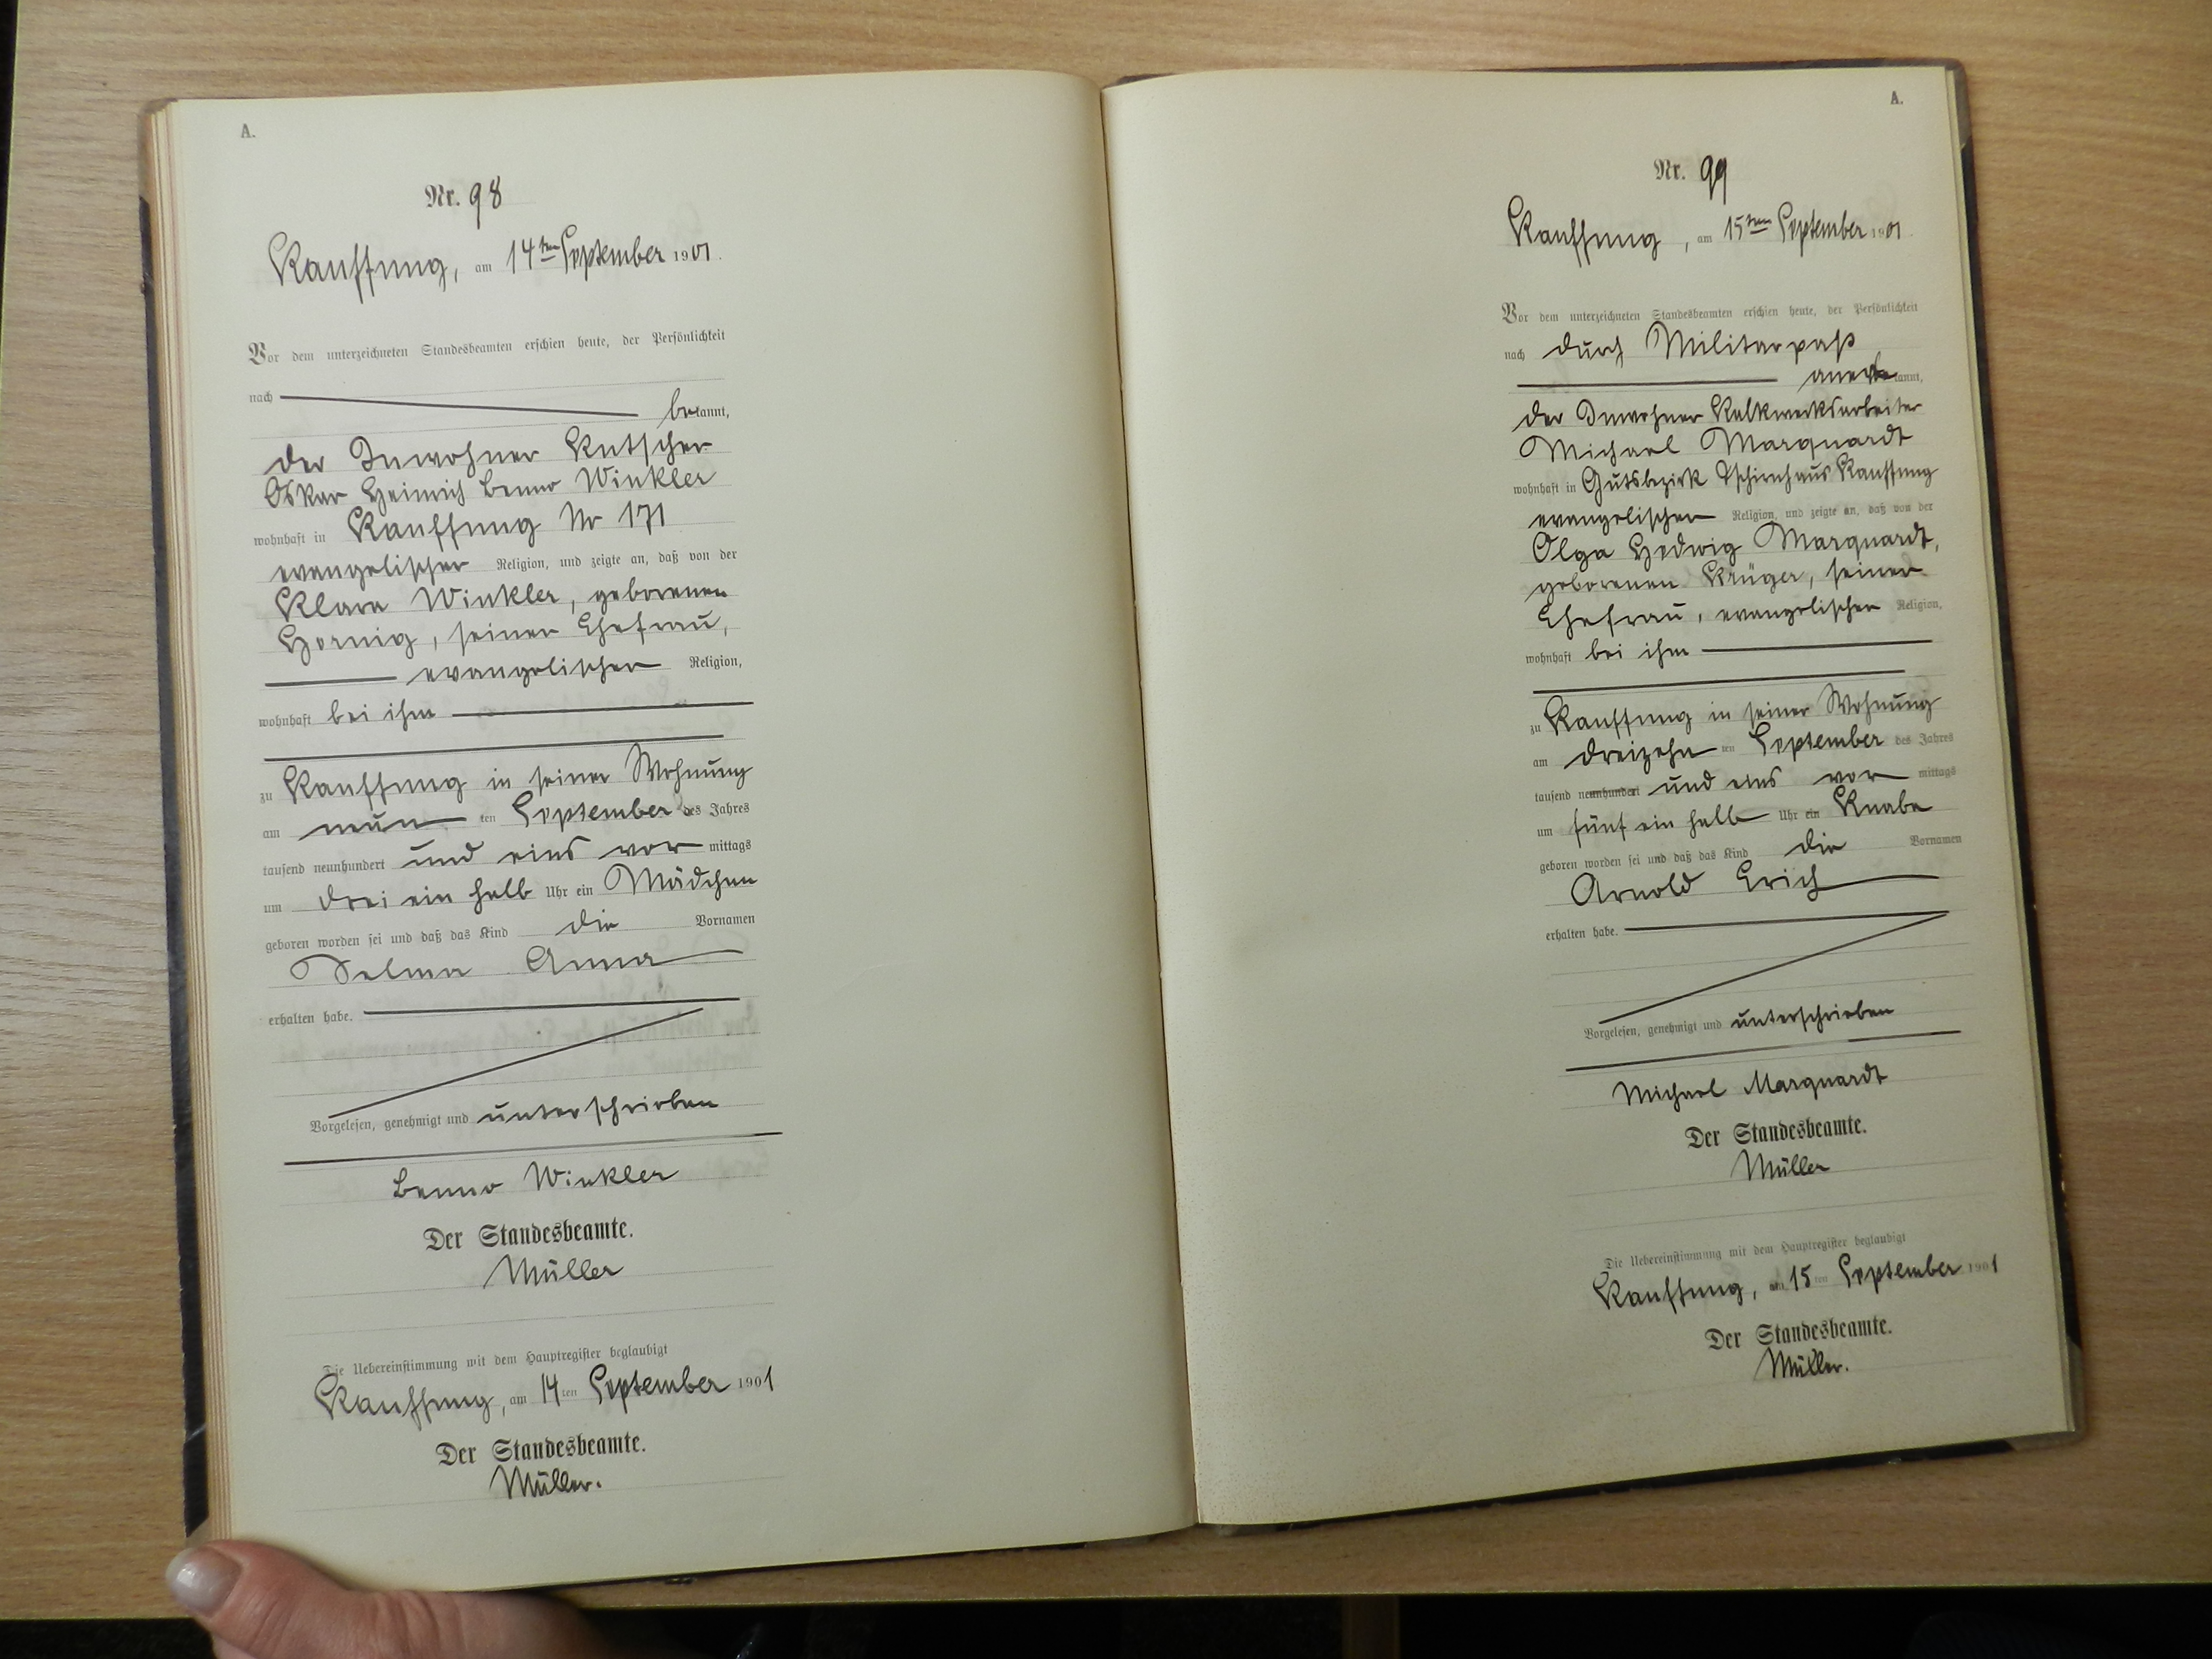 A.
Nr. 98
Kauffung, am 14ten September 1901.
Vor dem unterzeichneten Standesbeamten erschien heute, der Persönlichkeit
nach
bekannt,
der Inwohner Kutscher
Oskar Heinrich Benno Winkler
wohnhaft in Kauffung Nr 171
evangelischer Religion, und zeigte an, daß von der
Klara Winkler, geborenen
Hornig, seiner Ehefrau,
evangelischer Religion,
wohnhaft bei ihm
zu Kauffung in seiner Wohnung
am neun ten September des Jahres
tausend neunhundert und eins vor mittags
um drei ein halb Uhr ein Mädchen
geboren worden sei und daß das Kind die Vornamen
Selma Anna
erhalten habe.
Vorgelesen, genehmigt und unterschrieben
Benno Winkler
Der Standesbeamte.
Müller
Die Uebereinstimmung mit dem Hauptregister beglaubigt
Kauffung, am 14ten September 1901
Der Standesbeamte.
Müller.
A.
Nr. 99
Kauffung, am 15ten September 1901.
Vor dem unterzeichneten Standesbeamten erschien heute, der Persönlichkeit
nach durch Militarpaß
anerkannt,
der Inwohner Kalkwerksarbeiter
Michael Marquardt
wohnhaft in Gutsbezirk Tschirnhaus Kauffung
evangelischer Religion, und zeigte an, daß von der
Olga Hedwig Marquardt,
geborenen Krüger, seiner
Ehefrau, evangelischer Religion,
wohnhaft bei ihm
zu Kauffung in seiner Wohnung
am dreizehn ten September des Jahres
tausend neunhundert und eins vor mittags
um fünf ein halb Uhr ein Knabe
geboren worden sei und daß das Kind die Vornamen
Arnold Erich
erhalten habe.
Vorgelesen, genehmigt und unterschrieben
Michael Marquardt
Der Standesbeamte.
Müller
Die Uebereinstimmung mit dem Hauptregister beglaubigt
Kauffung, am 15ten September 1901
Der Standesbeamte.
Müller.